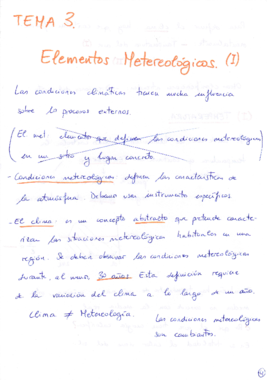 TEMA 3.
Elementos Metereológicos. (I)
Las condiciones climáticas tienen mucha influencia
sobre los procesos externos.
(El met elemento que definen las condiciones metereológicas
en un sitio y lugar concreto.
- Condiciones metereológicas definen las características de
la atmósfera. Debemos usar instrumentos específicos
- El clima: es un concepto abstracto que pretende caracte-
rizar las situaciones metereológicas habituales en una
región. Se deben observar las condiciones metereológicas
durante, al menos, 30 años. Esta definición requiere
de la variación del clima a lo largo de un año.
Clima ≠ Metereología.
Las condiciones metereológicas
son cambiantes.